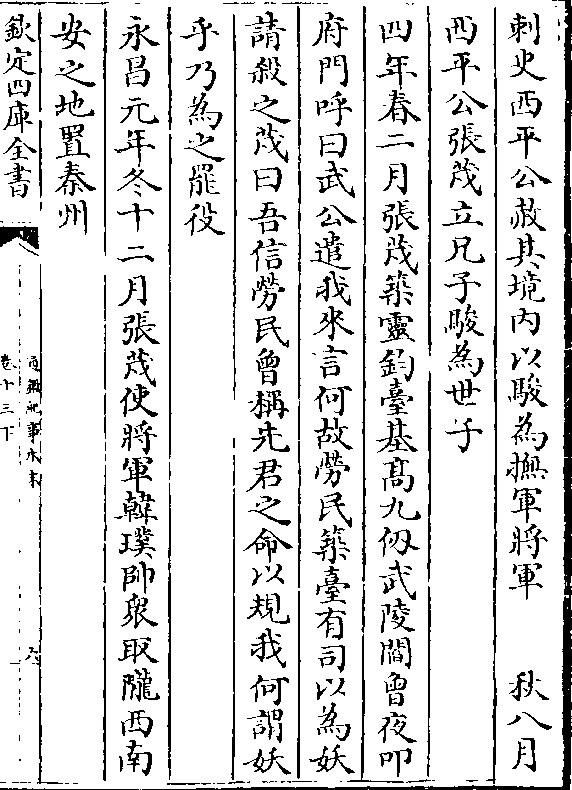 刺史西平公赦其境内以駿為撫軍將軍　秋八月
西平公張茂立兄子駿為世子
四年春二月張茂築靈鈞臺基高九仭武陵閻曾夜叩
府門呼曰武公遣我來言何故勞民築臺有司以為妖
請殺之茂曰吾信勞民曾稱先君之命以規我何謂妖
乎乃為之罷役
永昌元年冬十二月張茂使將軍韓璞帥衆取隴西南
安之地置秦州
欽定四庫全書
通鑑紀事本末
卷十三下